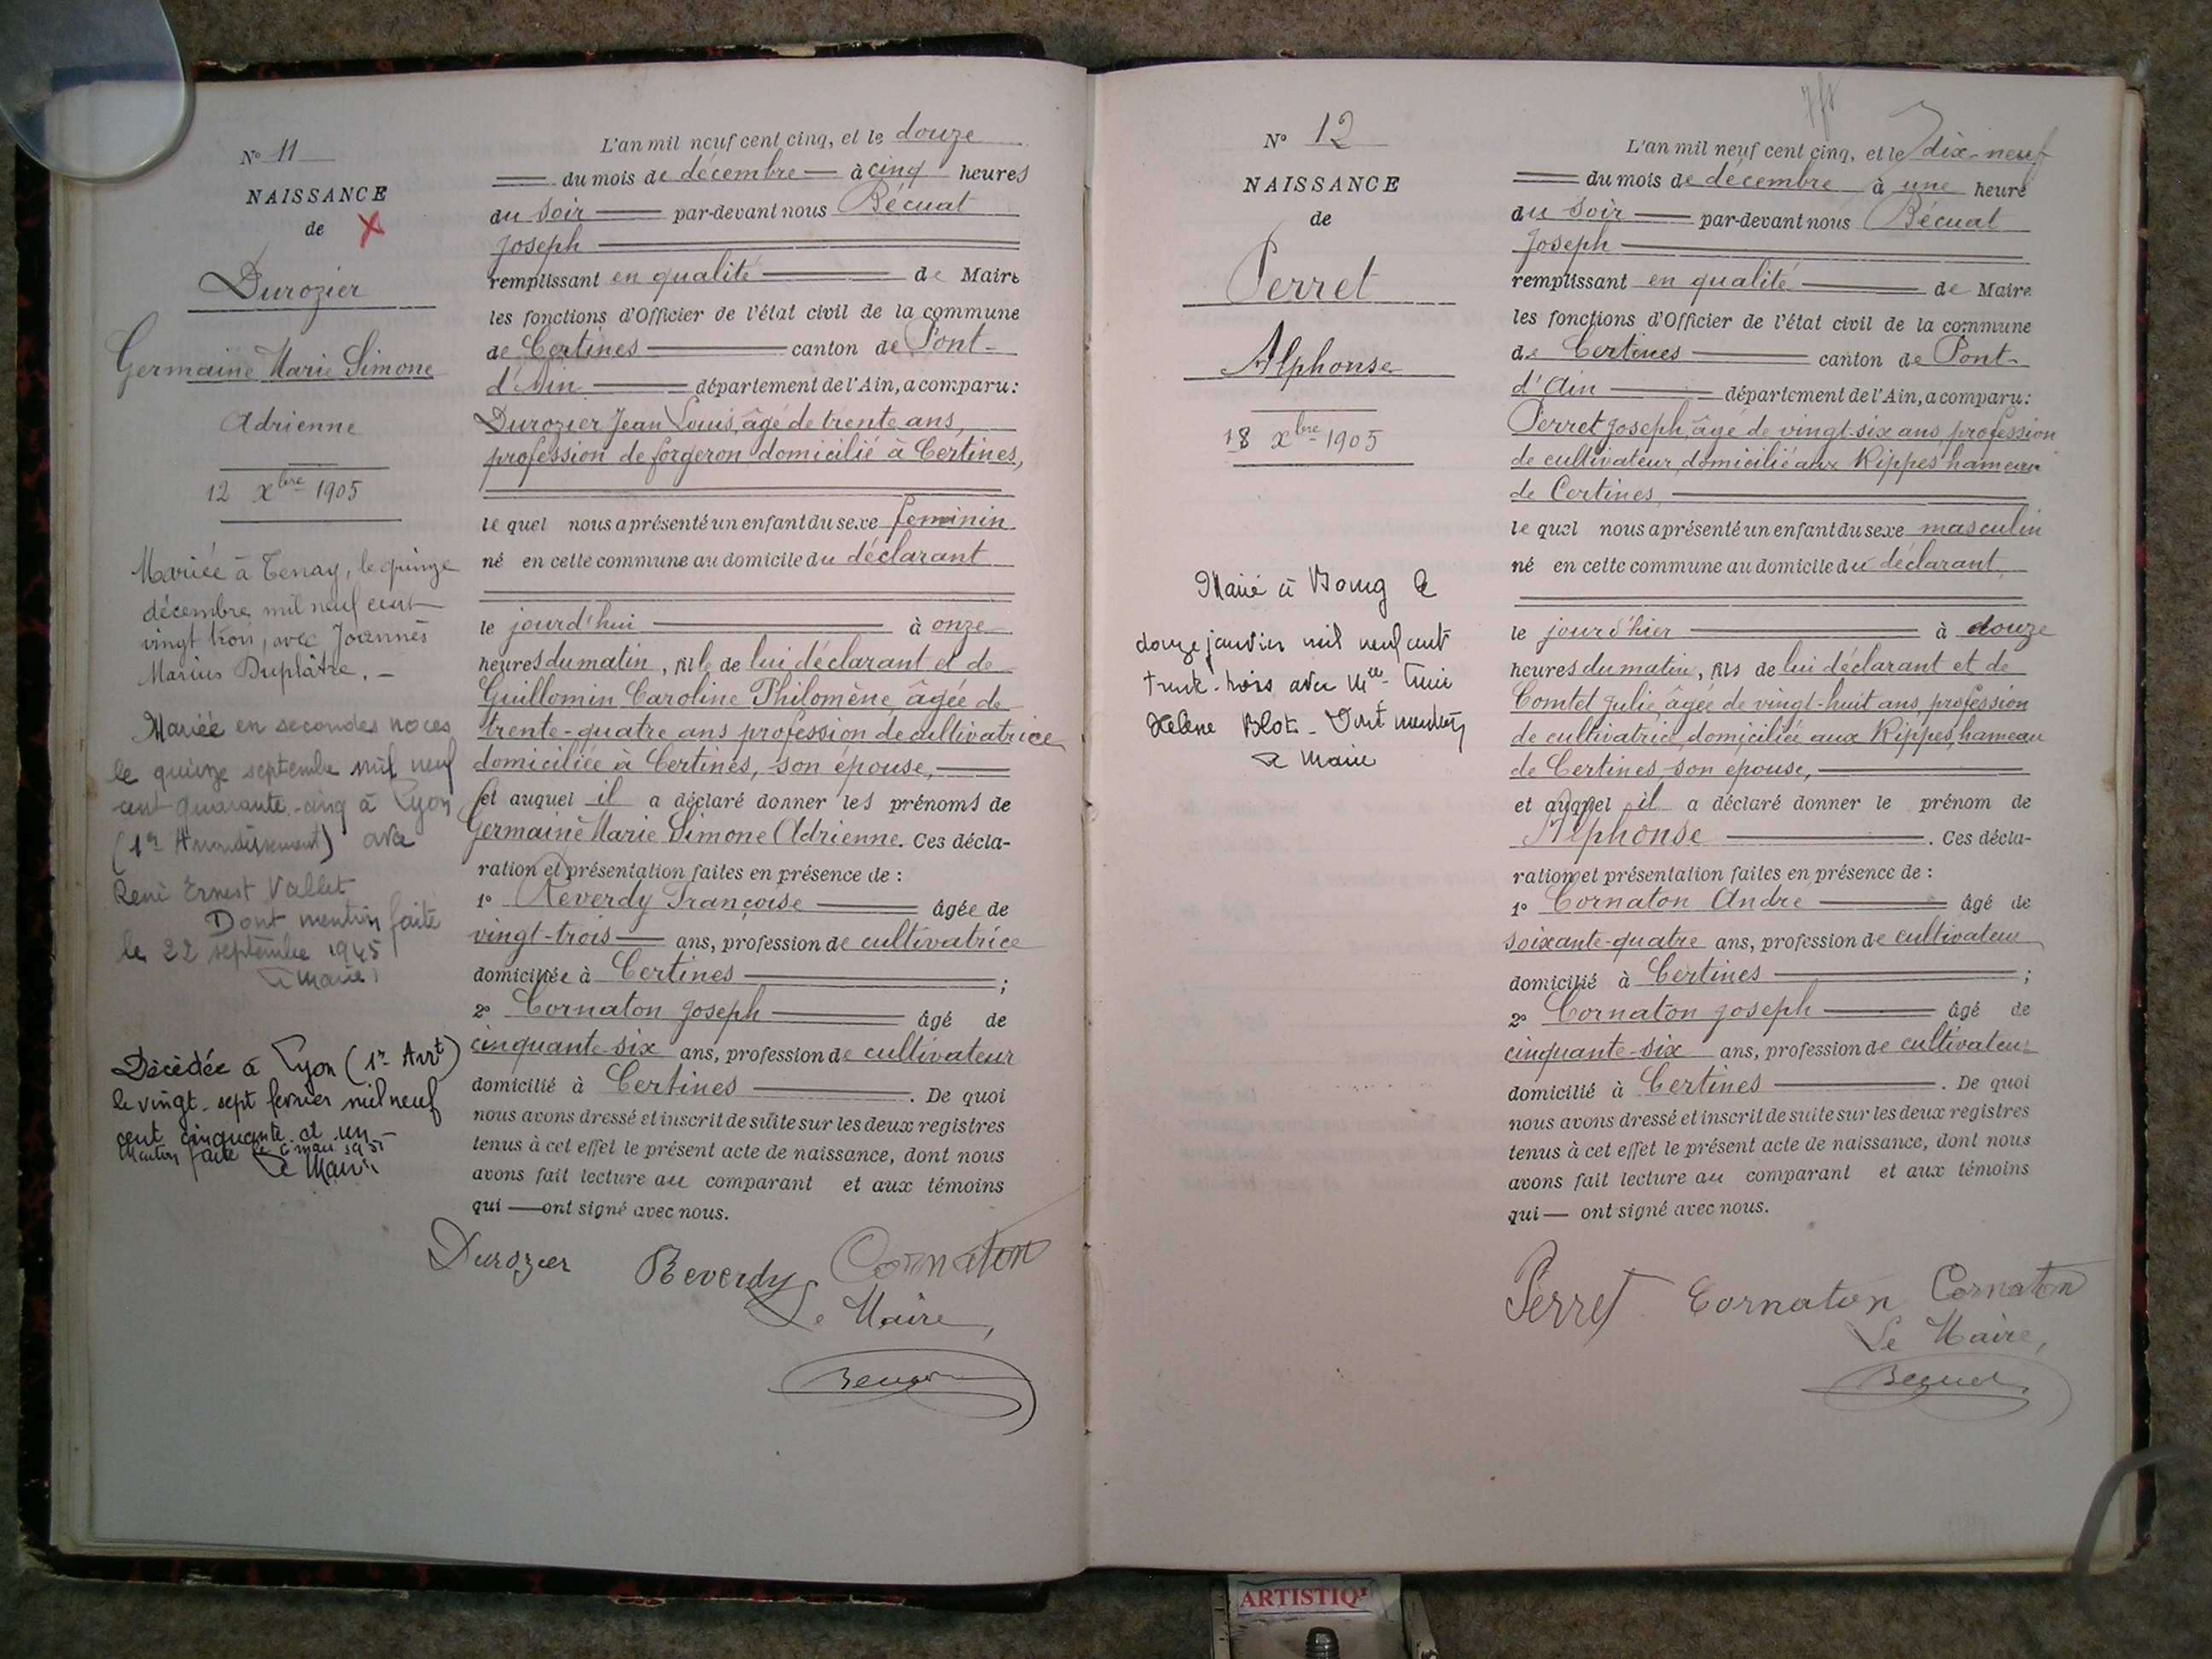 N° 11
NAISSANCE
de X
Durozier
Germaine Marie Simone
Adrienne
12 xbre 1905
Mariée à Tenay, le quinze
décembre mil neuf cent
vingt trois, avec Joannès
Marius Duplâtre. —
Mariée en secondes noces
le quinze septembre mil neuf
cent quarante-cinq à Lyon
(1er Arrondissement) avec
René Ernest Vallet
Dont mention faite
le 22 septembre 1945
Le Maire
Décédée à Lyon (1er Arrt)
le vingt-sept février mil neuf
cent cinquante et un —
Mention faite le 6 mars 1951
Le Maire
L'an mil neuf cent cinq, et le douze
du mois de décembre — à cinq heures
du soir — par-devant nous Bécuat
Joseph
remplissant en qualité — de Maire
les fonctions d'Officier de l'état civil de la commune
de Certines — canton de Pont-
d'Ain — département de l'Ain, a comparu :
Durozier Jean Louis, âgé de trente ans,
profession de forgeron domicilié à Certines,
le quel nous a présenté un enfant du sexe féminin
né en cette commune au domicile du déclarant
le jourd'hui — à onze
heures du matin, fille de lui déclarant et de
Guillomin Caroline Philomène, âgée de
trente-quatre ans profession de cultivatrice
domiciliée à Certines, son épouse, —
et auquel il a déclaré donner les prénoms de
Germaine Marie Simone Adrienne. Ces décla-
ration et présentation faites en présence de :
1° Reverdy Françoise — âgée de
vingt-trois — ans, profession de cultivatrice
domiciliée à Certines — ;
2° Cornaton Joseph — âgé de
cinquante-six ans, profession de cultivateur
domicilié à Certines — . De quoi
nous avons dressé et inscrit de suite sur les deux registres
tenus à cet effet le présent acte de naissance, dont nous
avons fait lecture au comparant et aux témoins
qui — ont signé avec nous.
Durozier Reverdy Cornaton
Le Maire,
N° 12
NAISSANCE
de
Perret
Alphonse
18 xbre 1905
Marié à Bourg le
douze janvier mil neuf cent
trente-trois avec Melle
Hélène Blot. Dont mention
Le Maire
L'an mil neuf cent cinq, et le dix-neuf
du mois de décembre à une heure
du soir — par-devant nous Bécuat
Joseph
remplissant en qualité — de Maire
les fonctions d'Officier de l'état civil de la commune
de Certines — canton de Pont-
d'Ain — département de l'Ain, a comparu :
Perret Joseph, âgé de vingt-six ans, profession
de cultivateur, domicilié aux Rippes hameau
de Certines
le quel nous a présenté un enfant du sexe masculin
né en cette commune au domicile du déclarant
le jour d'hier — à douze
heures du matin, fils de lui déclarant et de
Comtet Julie, âgée de vingt-huit ans profession
de cultivatrice, domiciliée aux Rippes, hameau
de Certines, son épouse, —
et auquel il a déclaré donner le prénom de
Alphonse — . Ces décla-
ration et présentation faites en présence de :
1° Cornaton André — âgé de
soixante-quatre ans, profession de cultivateur
domicilié à Certines — ;
2° Cornaton Joseph — âgé de
cinquante-six ans, profession de cultivateur
domicilié à Certines — . De quoi
nous avons dressé et inscrit de suite sur les deux registres
tenus à cet effet le présent acte de naissance, dont nous
avons fait lecture au comparant et aux témoins
qui — ont signé avec nous.
Perret Cornaton Cornaton
Le Maire,
ARTISTIQ